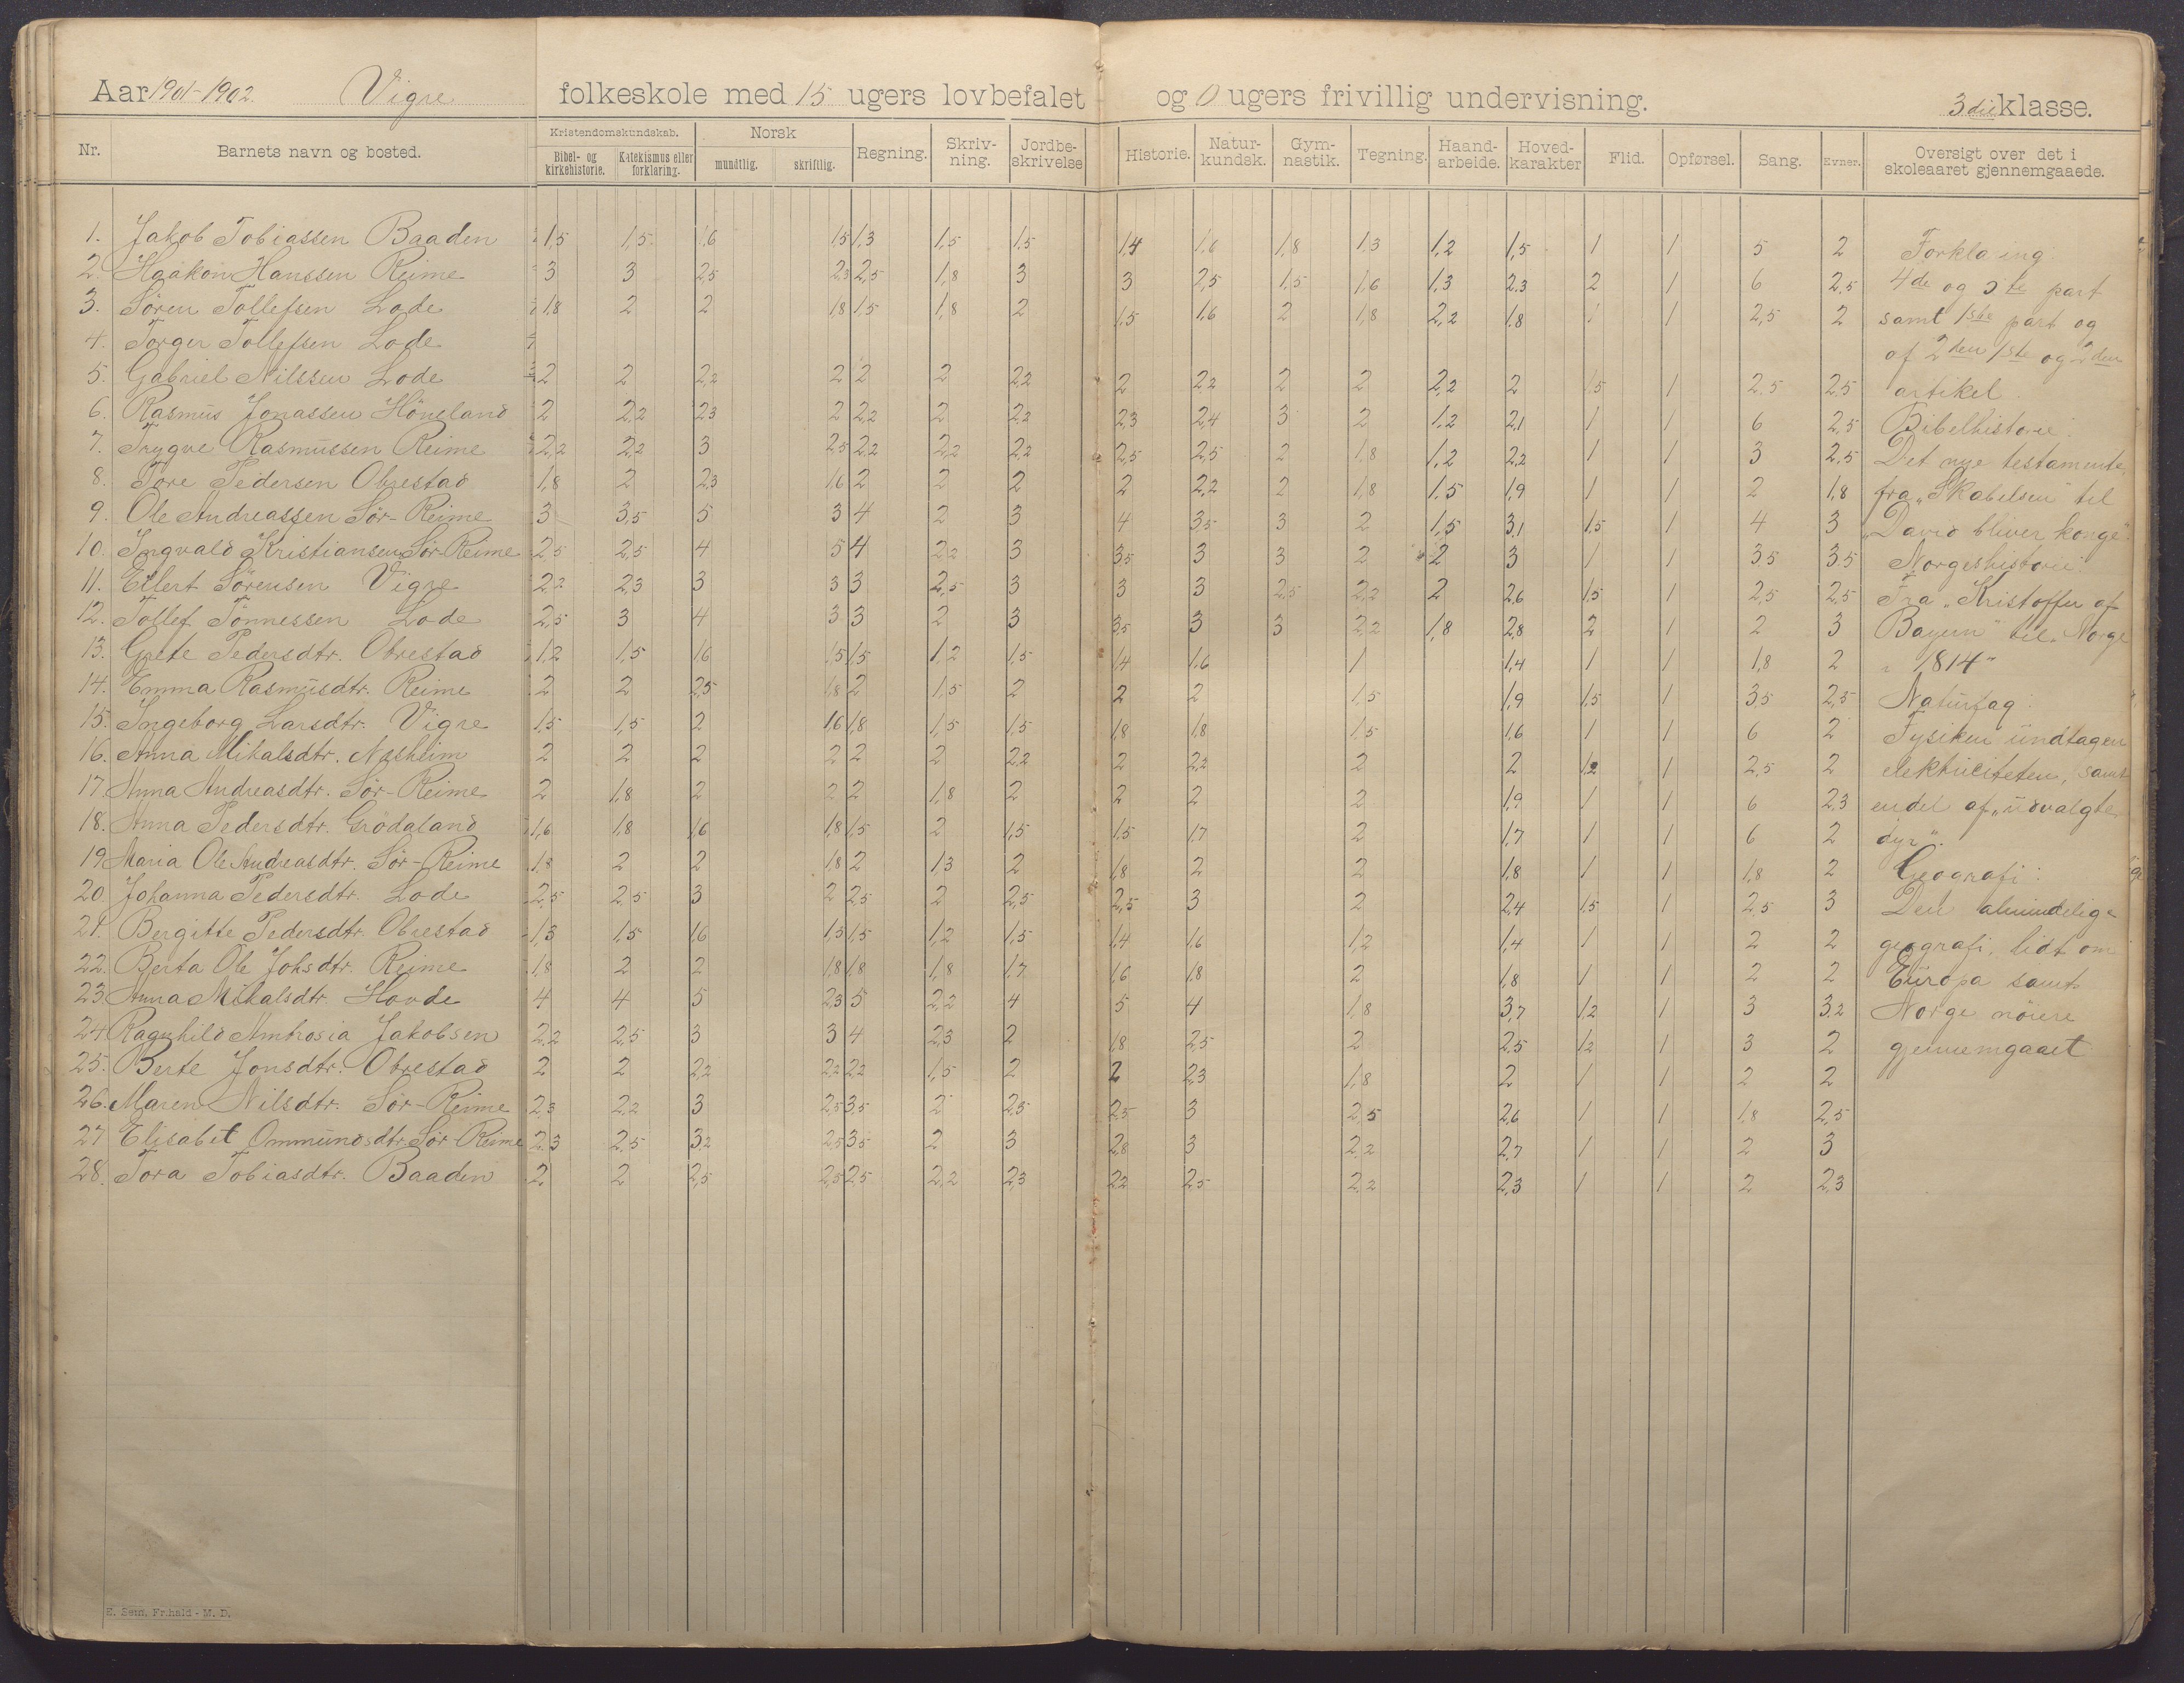 Aar 1901-1902. Vigre folkeskole med 15 ugers lovbefalet og 0 ugers frivillig undervisning. 3die klasse.
Nr. Barnets navn og bosted. Kristendomskundskab. Bibel- og kirkehistorie. Katekismus eller forklaring. Norsk mundtlig. skriftlig. Regning. Skriv-ning. Jordbe-skrivelse Historie. Natur-kundsk. Gym-nastik. Tegning. Haand-arbeide. Hoved-karakter Flid. Opførsel. Sang. Evner. Oversigt over det i skoleaaret gjennemgaaede.
1. Jakob Tobiassen Baaden 1,5 1,5 1,6 1,5 1,3 1,5 1,5 1,4 1,6 1,8 1,3 1,2 1,5 1 1 5 2 Forkla ing:
2. Haakon Hanssen Reime 3 3 2,5 2,3 2,5 1,8 3 3 2,5 1,5 1,6 1,3 2,3 2 1 6 2,5 4de og 5te part
3. Søren Tollefsen Lode 1,8 2 2 1,8 1,5 1,8 2 1,5 1,6 2 1,8 2,2 1,8 1 1 2,5 2 samt 1ste part og
4. Torger Tollefsen Lode af 2den 1ste og 2den
5. Gabriel Nilssen Lode 2 2 2,2 2 2 2 2,2 2 2,2 2 2 2,2 2 1,5 1 2,5 2,5 artikel.
6. Rasmus Jonassen Høneland 2 2,2 2,3 2 2,2 2 2,2 2,3 2,4 3 2 1,2 2,1 1 1 6 2,5 Bibelhistorie:
7. Trygve Rasmussen Reime 2,2 2,2 3 2,5 2,2 2,2 2,2 2,5 2,5 2 1,8 1,2 2,2 1 1 3 2,5 Det nye testamente,
8. Tore Pedersen Obrestad 1,8 2 2,3 1,6 2 2 2 2 2,2 2 1,8 1,5 1,9 1 1 2 1,8 fra "Skabelsen" til
9. Ole Andreassen Sør-Reime 3 3,5 5 3 4 2 3 4 3,5 3 2 1,5 3,1 1,5 1 4 3 "David bliver konge".
10. Ingvald Kristiansen Sør-Reime 2,5 2,5 4 5 4 2,2 3 3,5 3 3 2 2 3 1 1 3,5 3,5 Norgeshistorie:
11. Eilert Sørensen Vigre 2,2 2,3 3 3 3 2,5 3 3 3 2,5 2,2 2 2,6 1,5 1 2,5 2,5 Fra "Kristoffer af
12. Tollef Tønnessen Lode 2,5 3 4 3 3 2 3 3,5 3 3 2,2 1,8 2,8 2 1 2 3 Bayern" til "Norge
13. Grete Pedersdtr. Obrestad 1,2 1,5 1,6 1,5 1,5 1,2 1,5 1,4 1,6 1 1,4 1 1 1,8 2 i 1814"
14. Emma Rasmusdtr. Reime 2 2 2,5 1,8 2 1,5 2 2 2 1,5 1,9 1,5 1 3,5 2,5 Naturfag:
15. Ingeborg Larsdtr. Vigre 1,5 1,5 2 1,6 1,8 1,5 1,5 1,8 1,8 1,5 1,6 1 1 6 2 Fysiken undtagen
16. Anna Mikalsdtr. Næsheim 2 2 2 2 2 2 2,2 2 2,2 2 2 1,2 1 2,5 2 elektriciteten, samt
17. Anna Andreasdtr. Sør-Reime 2 1,8 2 2 2 1,8 2 2 2 2 1,9 1 1 6 2,3 endel af "udvalgte
18. Anna Pedersdtr. Grødaland 1,6 1,8 1,6 1,8 1,5 2 1,5 1,5 1,7 2 1,7 1 1 6 2 dyr".
19 Maria Ole Andreasdtr. Sør-Reime 1,8 2 2 1,8 2 1,3 2 1,8 2 2 1,8 1 1 1,8 2 Geografi:
20. Johanna Pedersdtr. Lode 2,5 2,5 3 2 2,5 2 2,5 2,5 3 2 2,4 1,5 1 2,5 3 Den almindelige
21. Bergitte Pedersdtr. Obrestad 1,3 1,5 1,6 1,5 1,5 1,2 1,5 1,4 1,6 1,2 1,4 1 1 2 2 geografi, lidt om
22. Berta Ole Johsdtr. Reime 1,8 2 2 1,8 1,8 1,8 1,7 1,6 1,8 2 1,8 1 1 2 2 Europa samt
23. Anna Mikalsdtr. Hovde 4 4 5 2,3 5 2,2 4 5 4 1,8 3,7 1,2 1 3 3,2 Norge nøiere
24 Ragnhild Ambrosia Jakobsen 2,2 2,5 3 3 4 2,3 2 1,8 2,5 2 2,5 1,2 1 3 2 gjennemgaaet.
25. Berte Jonsdtr. Obrestad 2 2 2,2 2,2 2,2 1,5 2 2 2,3 1,8 2 1 1 2 2
26. Maren Nilsdtr. Sør-Reime 2,3 2,2 3 2,5 3,5 2 2,5 2,5 3 2,5 2,6 1 1 1,8 2,5
27 Elisabet Ommundsdtr Sør-Reime 2,3 2,5 3,2 2,5 3,5 2 3 2,8 3 2,2 2,7 1 1 2 3
28. Tora Tobiasdtr. Baaden 2 2 2,5 2,5 2,5 2,2 2,3 2,2 2,5 2,2 2,3 1 1 2 2,3
E. Sem, Fr.hald - M. D.